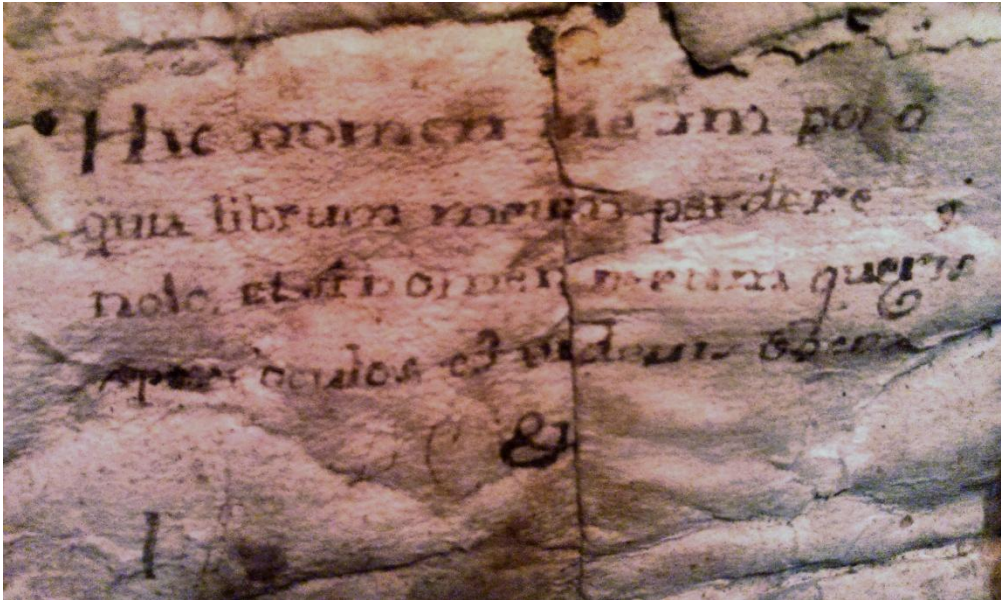 Hic nomen meum pono
quia librum meum perdere
nolo, et si nomen meum queris
oculos et
&